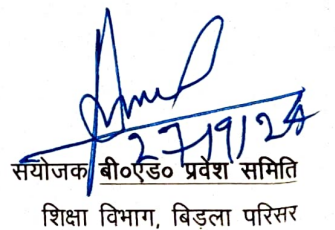 27/9/24
संयोजक बी०एड० प्रवेश समिति
शिक्षा विभाग, बिड़ला परिसर